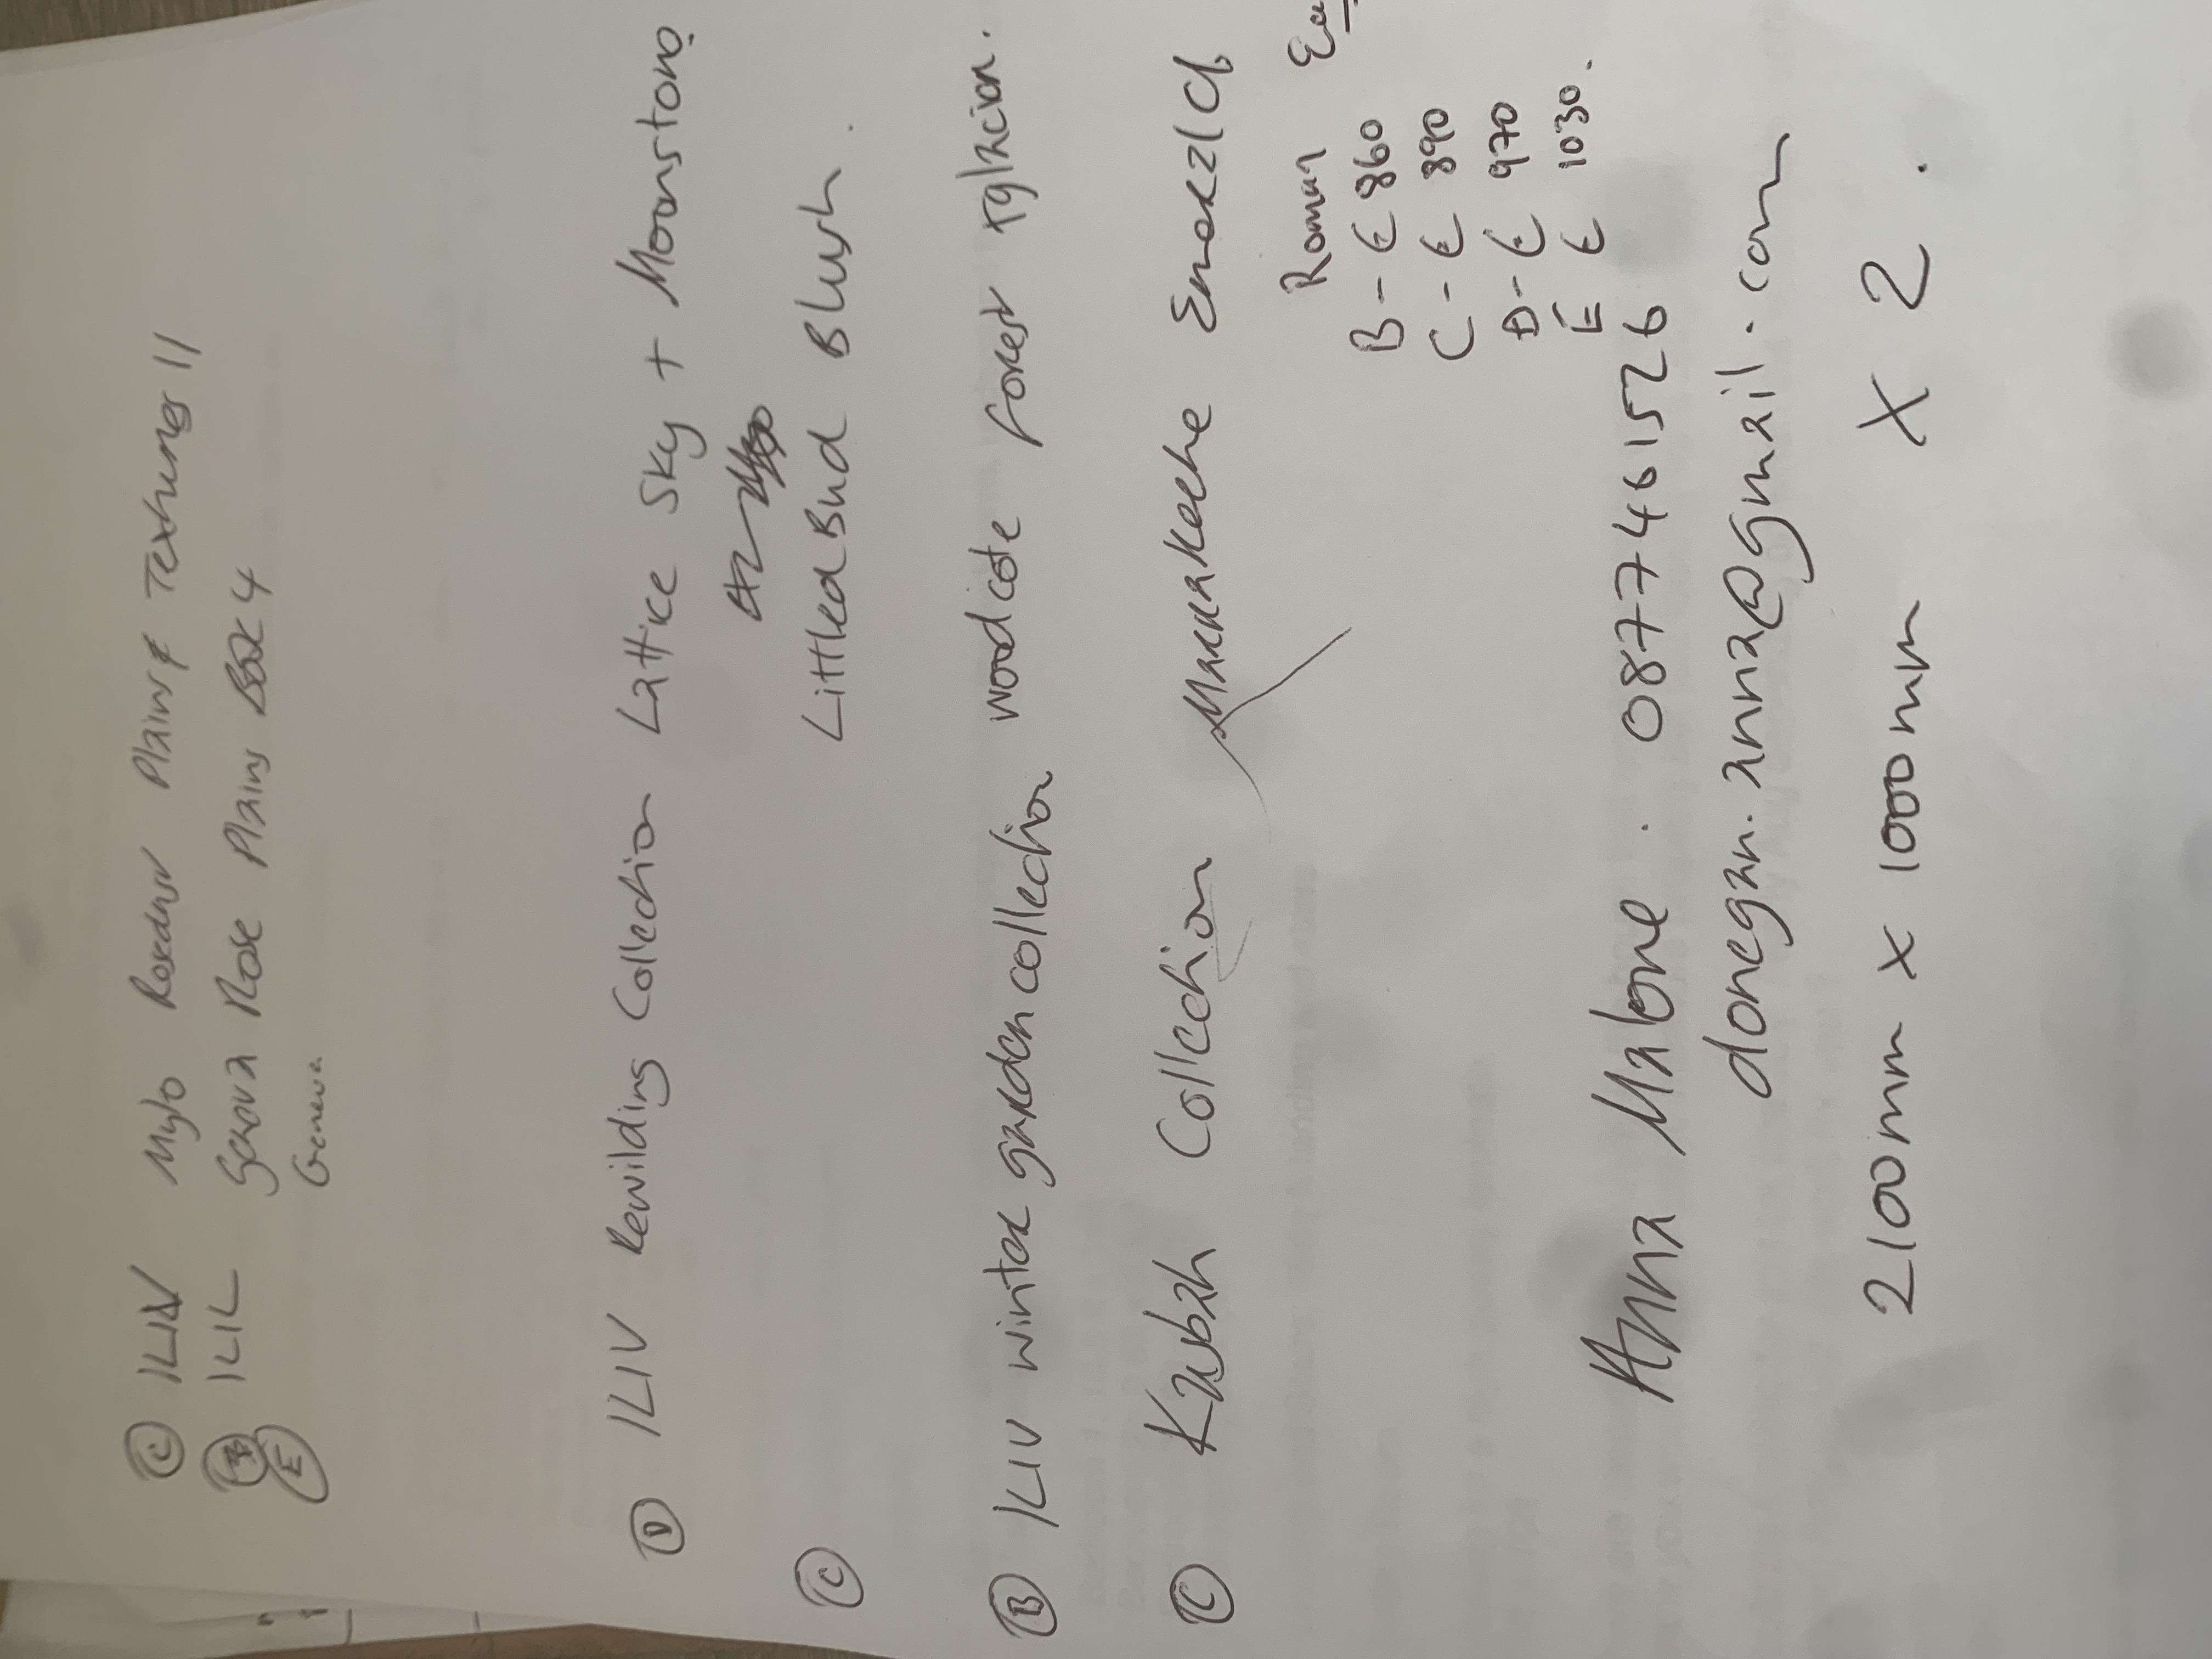 © ILIV Mylo Rosedew Plains & Textures 11
ILIL Rose Plains BOX 4
(E) Geneva
(D) ILIV Rewilding Collection Lattice Sky + Moonstone
(C) Littled Bud Blush.
(B) ILIV winter garden collection woodcote forest
(C) Kasbah Collection Marrakeche Emerald
Roman
B - € 860
C - € 890
D - € 970
E € 1030.
Anna Malone. 0877461526
donegan.anna@gmail.com
2100mm x 1000mm X 2.